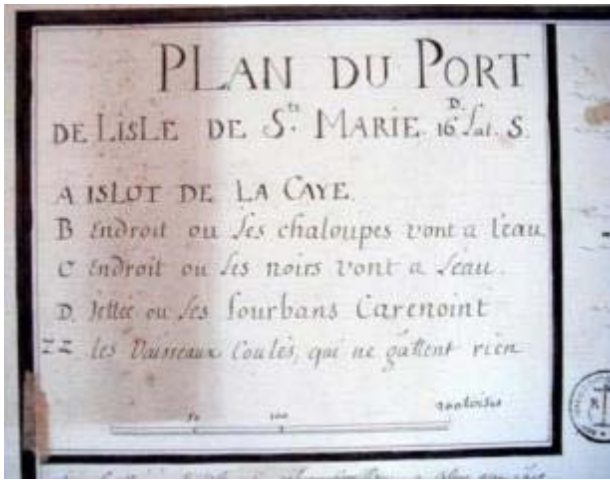 PLAN DU PORT
DE LISLE DE Ste. MARIE. 16D. Lat. S.
A ISLOT DE LA CAYE.
B Endroit ou les chaloupes vont a l'eau
C Endroit ou les noirs vont a l'eau.
D. Jettée ou les fourbans Carenoint
ZZ les Vaisseaux Coulés, qui ne gattent rien
50 100 200 toises